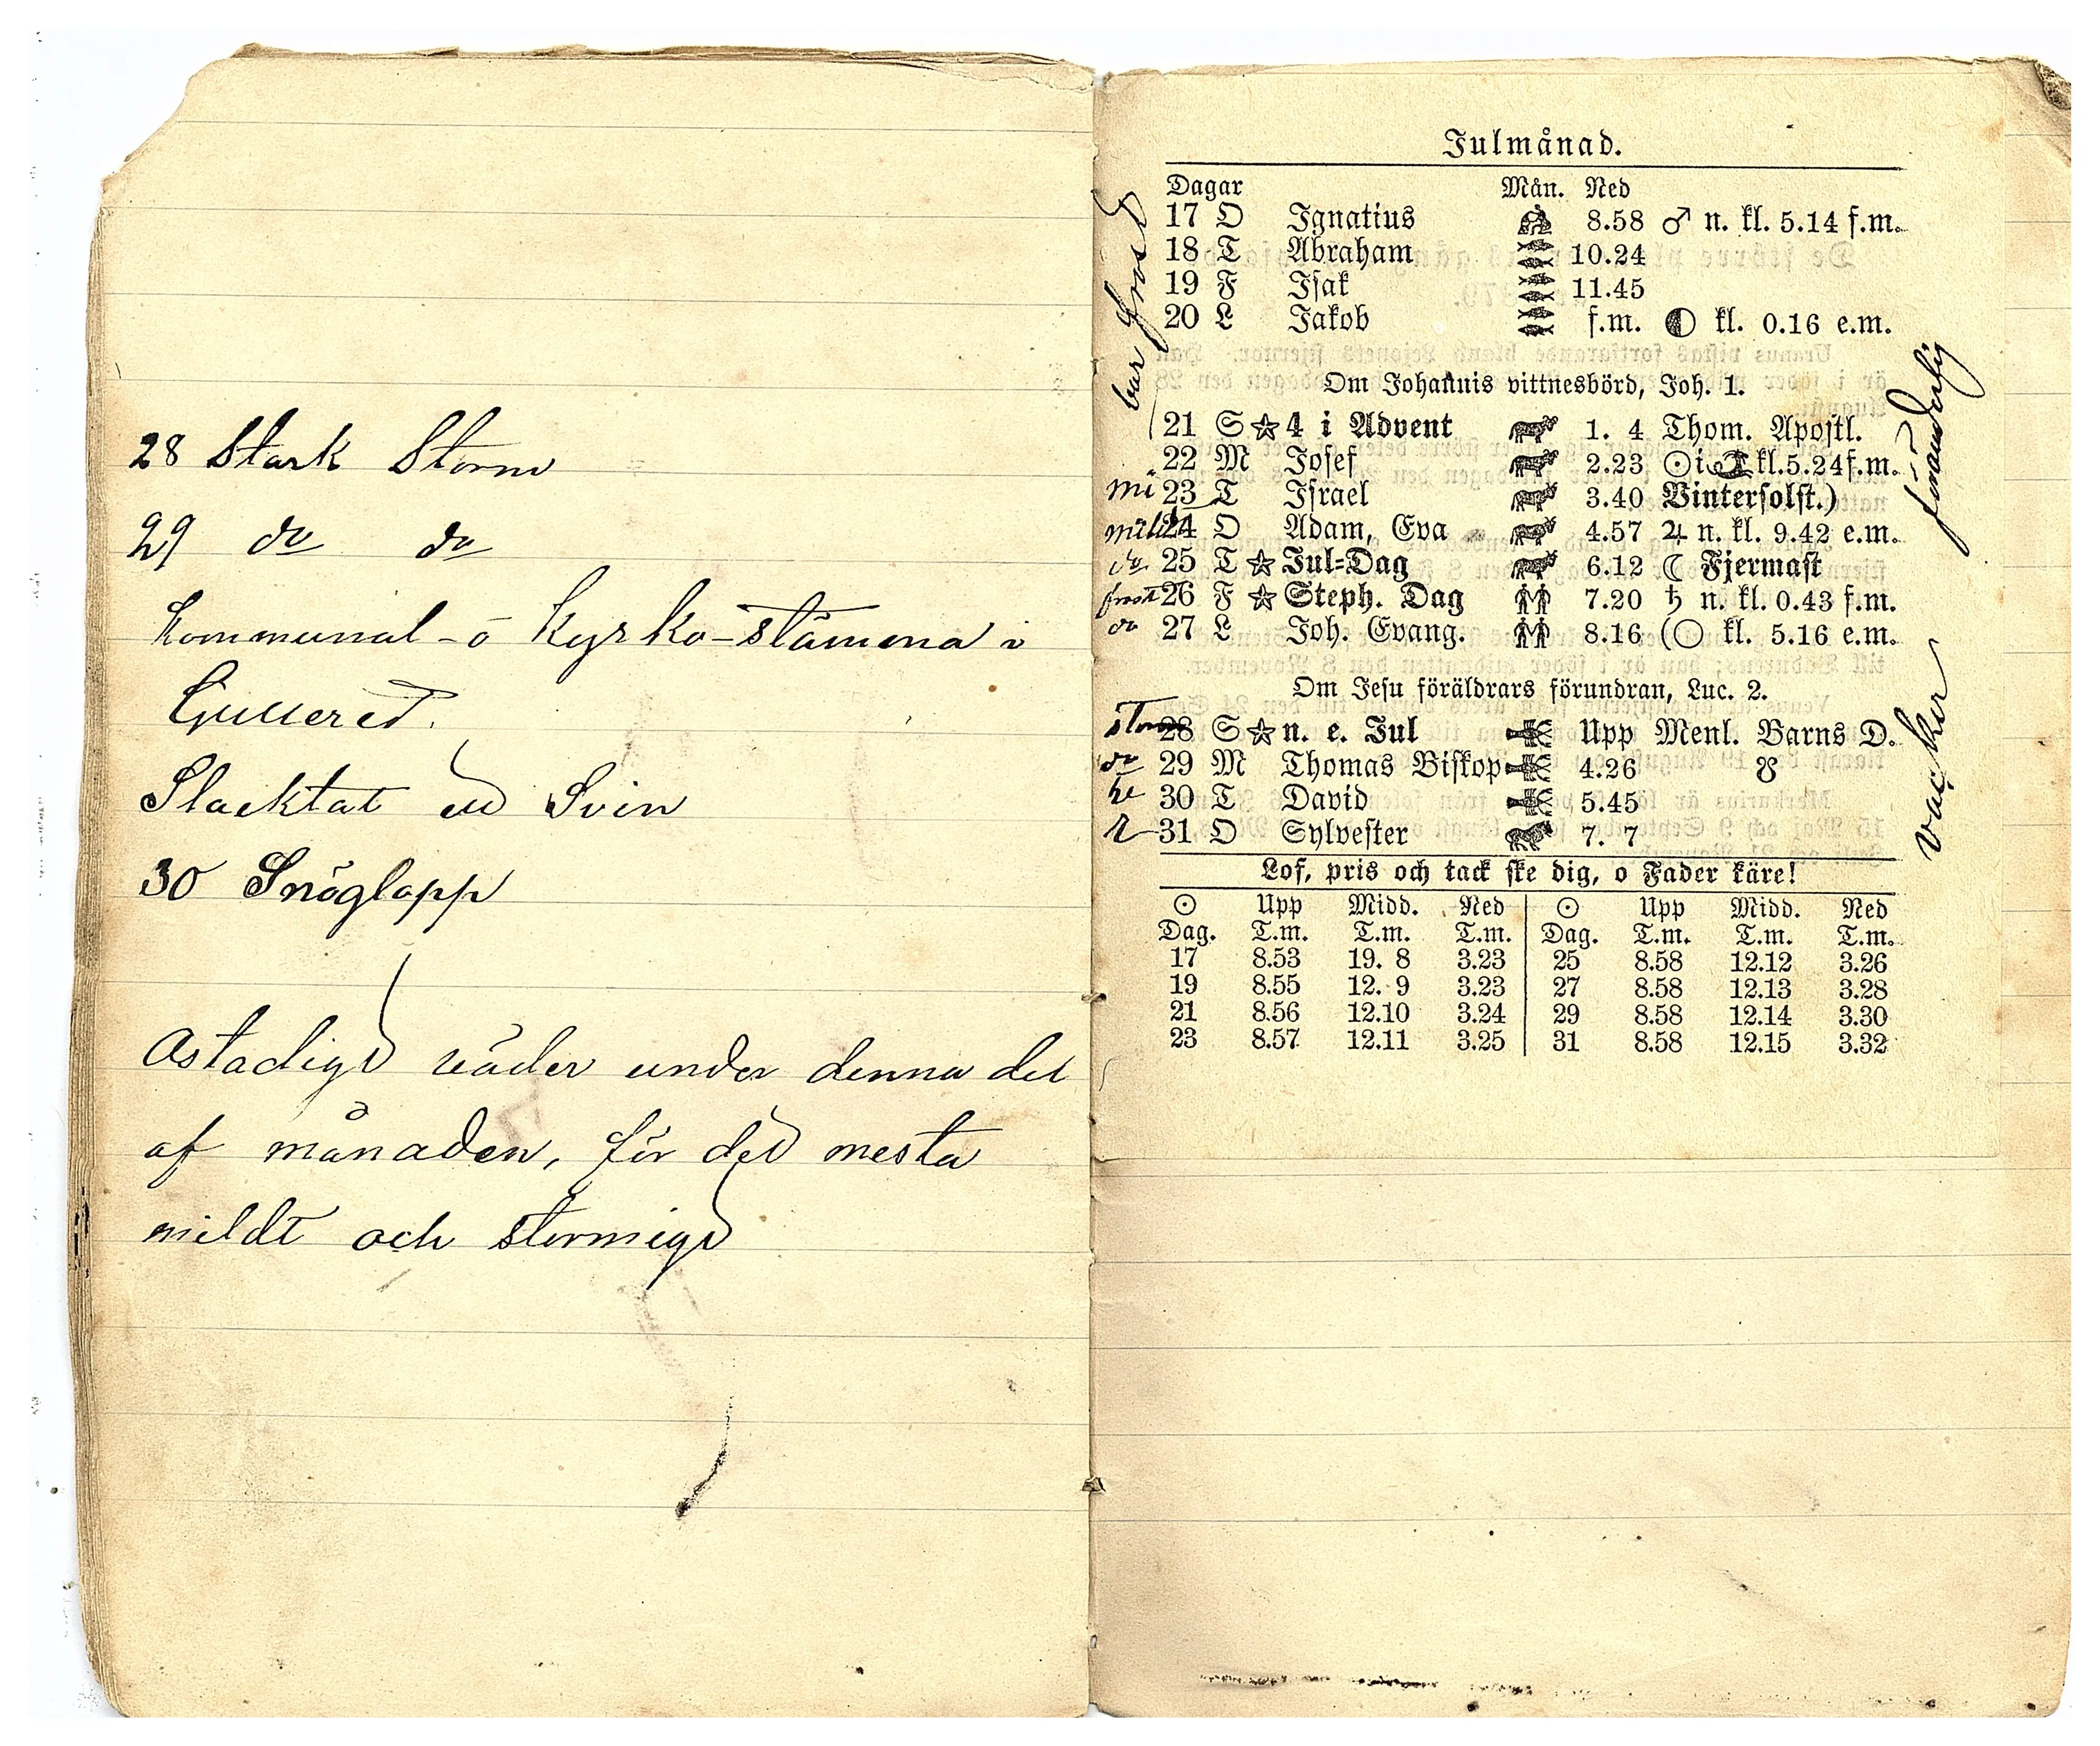 28 Stark Storm
29 do do
Kommunal-o Kyrko-stämma i
Gullered.
Slacktat ett Svin
30 Snöglopp
Ostadigt väder under denna del
af månaden, för det mesta
mildt och stormigt
Julmånad.
Dagar Mån. Ned
17 O Ignatius 8.58 ♂ n. kl. 5.14 f.m.
18 T Abraham 10.24
19 F Isak 11.45
20 L Jakob f.m. kl. 0.16 e.m.
bar frost
Om Johannis vittnesbörd, Joh. 1.
21 S ☆ 4 i Advent 1. 4 Thom. Apostl.
22 M Josef 2.23 ☉ i kl. 5.24 f.m.
23 T Israel 3.40 Vintersolst.)
24 O Adam, Eva 4.57 ♃ n. kl. 9.42 e.m.
do 25 T ☆ Jul-Dag 6.12 ☾ Fjermast
frost 26 F ☆ Steph. Dag 7.20 ♄ n. kl. 0.43 f.m.
do 27 L Joh. Evang. 8.16 (○ kl. 5.16 e.m.
föränderlig
Om Jesu föräldrars förundran, Luc. 2.
storm 28 S ☆ n. e. Jul Upp Menl. Barns D.
do 29 M Thomas Biskop 4.26 ☋
30 T David 5.45
31 O Sylvester 7. 7
vacker
Lof, pris och tack ske dig, o Fader käre!
☉ Upp Midd. Ned ☉ Upp Midd. Ned
Dag. T.m. T.m. T.m. Dag. T.m. T.m. T.m.
17 8.53 19. 8 3.23 25 8.58 12.12 3.26
19 8.55 12. 9 3.23 27 8.58 12.13 3.28
21 8.56 12.10 3.24 29 8.58 12.14 3.30
23 8.57 12.11 3.25 31 8.58 12.15 3.32